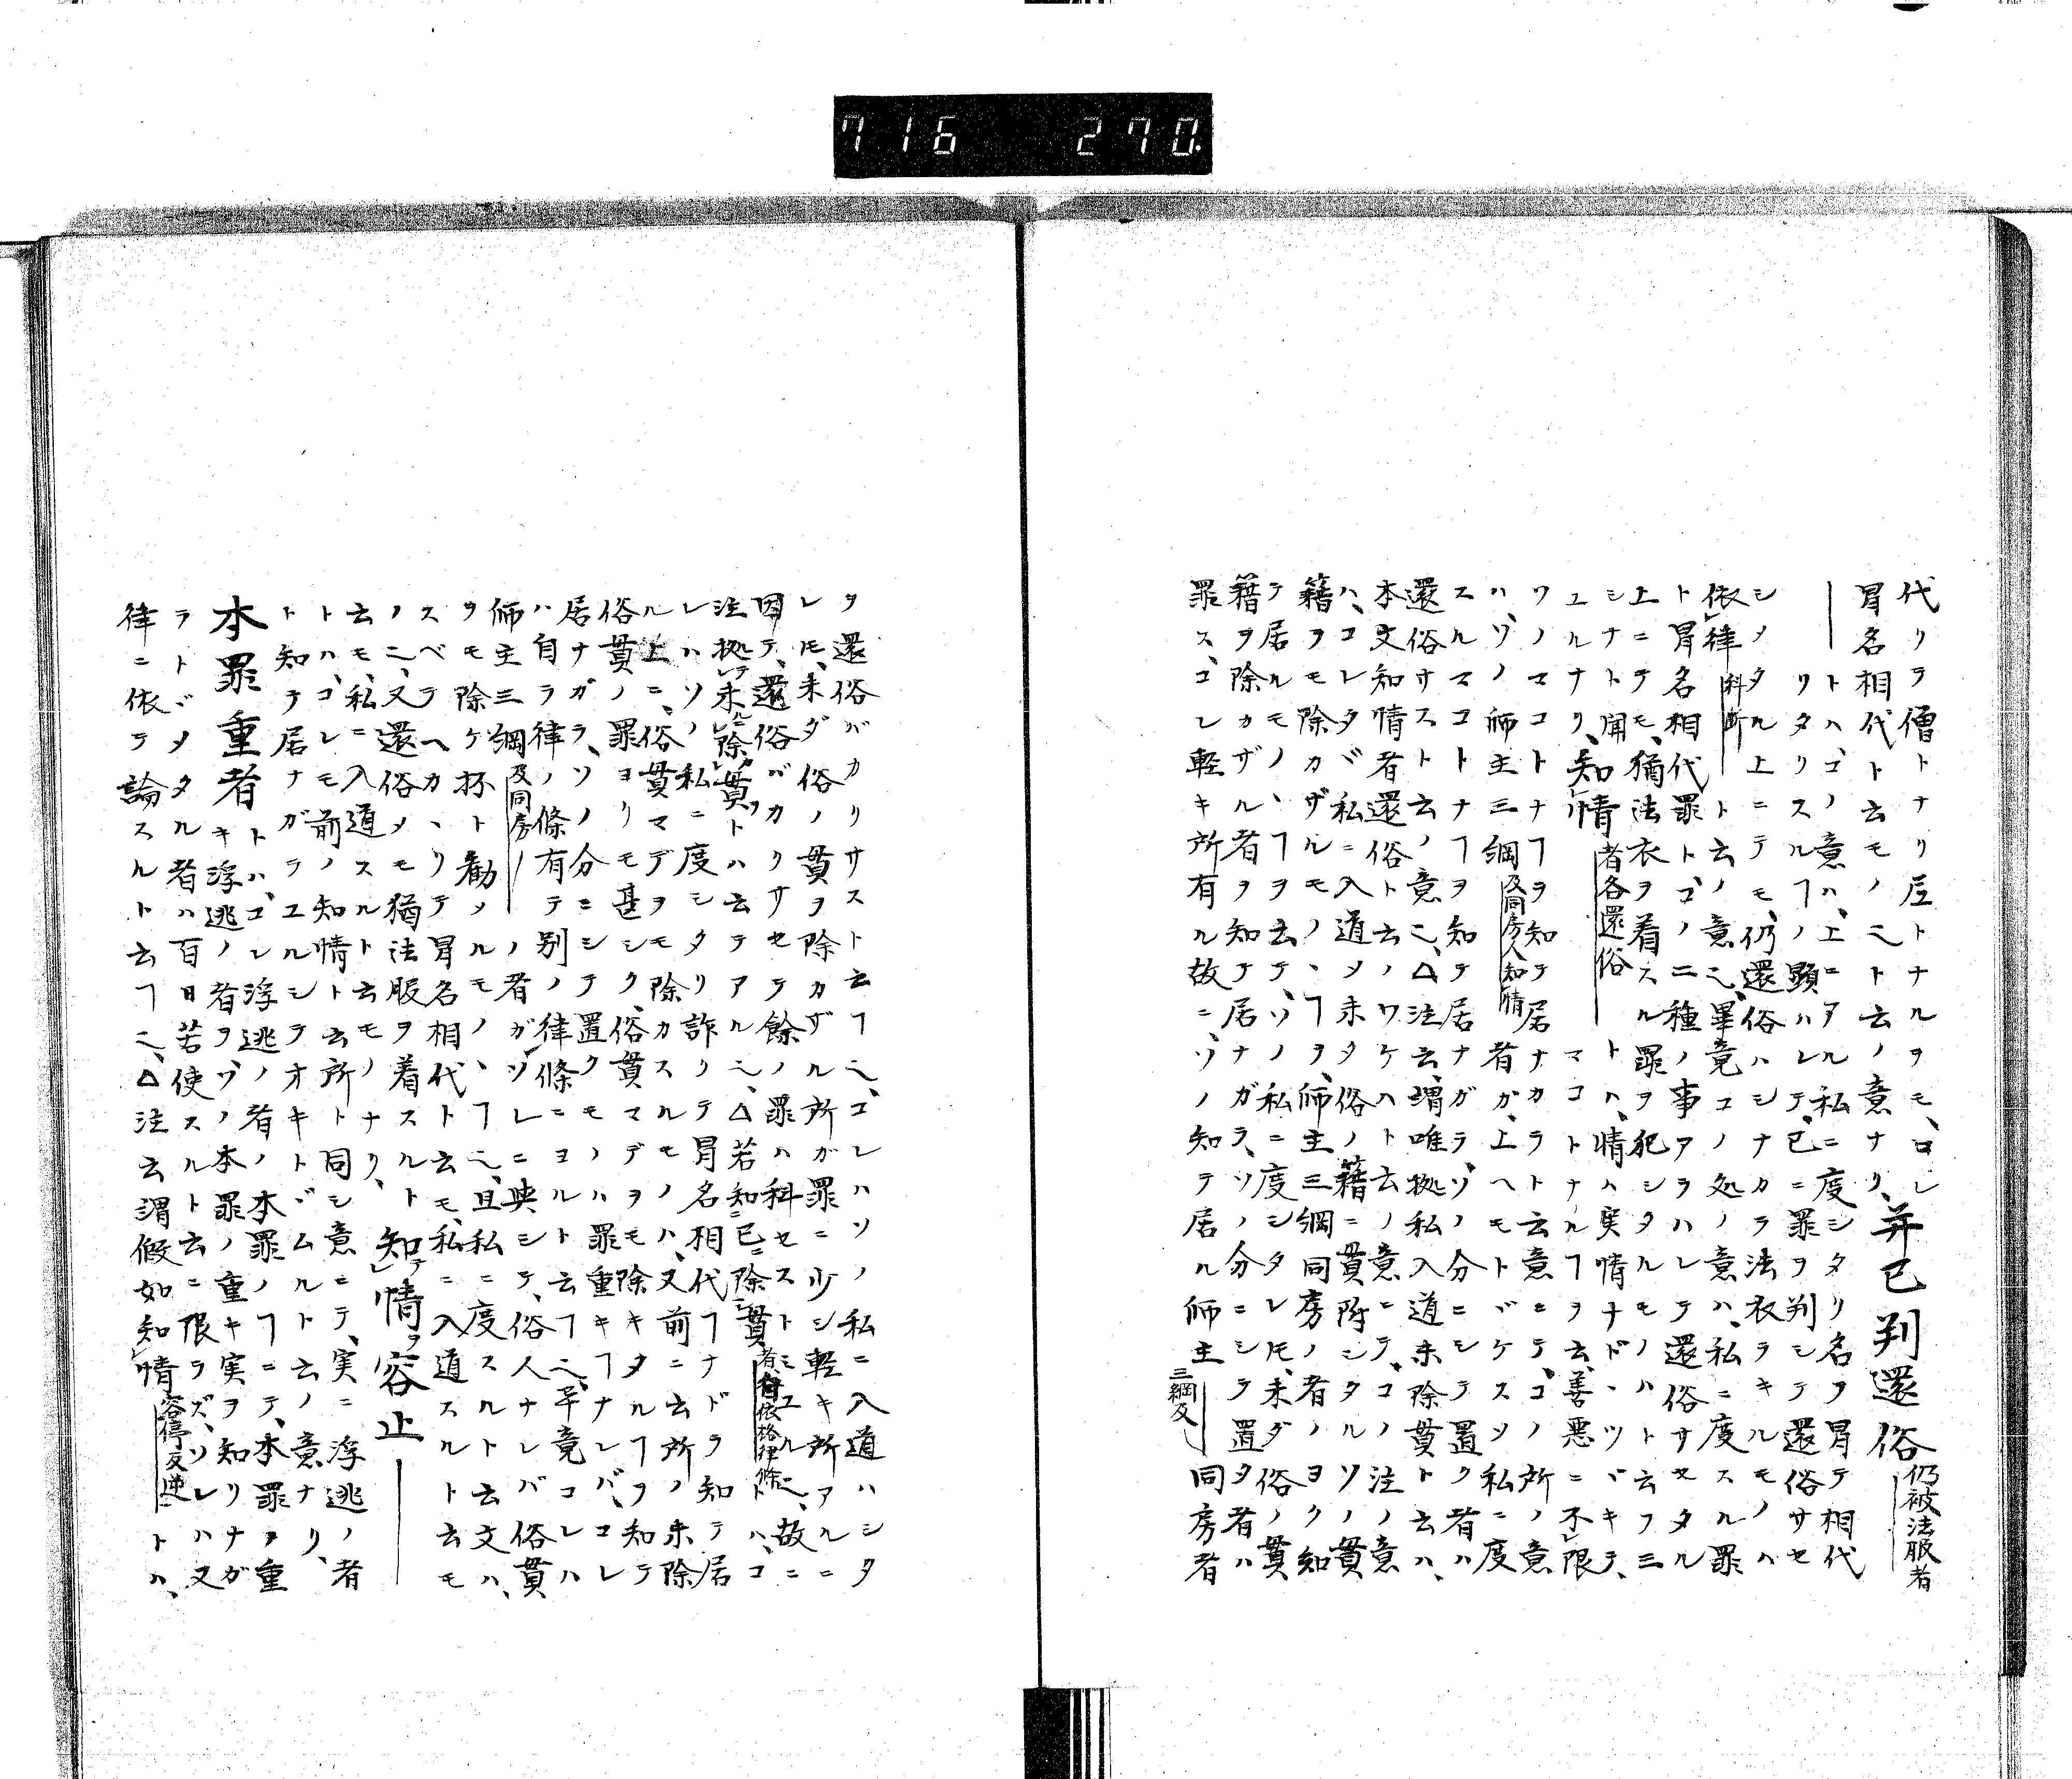 716 270.
代リテ僧トナリ尼トナルヲモ、コレ
冒名相代ト云モノ也ト云ノ意ナリ、并已判還俗仍被法服者
―トハ、コノ意ハ、上ニアル私ニ度シタリ名ヲ冒テ相代
リタリスルヿノ顕ハレテ、已ニ罪ヲ判シテ還俗サセ
シメタル上ニテモ、仍還俗ハシナカラ法衣ラキルモノハ
依律科断―ト云ノ意也、畢竟コノ処ノ意ハ、私ニ度スル罪
ト冒名相代罪トコノ二種ノ事アラハレテ還俗サセタル
上ニテモ、猶法衣ヲ着スル罪ヲ犯シタルモノハト云フ三
シナト聞ユルナリ、知情者各還俗―トハ、情ハ実情ナドヽツヾキテ、
マコトナルヿヲ云、善悪ニ不限、
ワノマコトナヿヲ知テ居ナカラト云意ニテ、コノ所ノ意
ハ、ソノ師主三綱及同房人知情者ガ、上ヘモトドケスソ私ニ度
スルマコトナヿヲ知テ居ナガラ、ソノ分ニシテ置ク者ハ
還俗サスト云ノ意也、△法云、謂唯拠私入道未除貫ト云ハ、
本文知情者還俗ト云ノワケハト云ノ意ニテ、コノ注ノ意
ハ、コレタヾ私ニ入道ヲ未タ俗ノ籍ニ貫附シタルソノ貫
籍ヲモ除カザルモノヽヿヲ、師主三綱同房ノ者ノヨク知
テ居ルモノヽヿヲ云テ、ソノ私ニ度シタレ𪜈、未ダ俗ノ貫
籍ヲ除カザル者ヲ知テ居ナガラ、ソノ分ニシテ置タ者ハ
罪ス、コレ軽キ所有ル故ニ、ソノ知テ居ル師主三綱及―同房者
ヲ還俗ガカリサスト云ヿ也、コレハソノ私ニ入道ハシタ
レ𪜈、未ダ俗ノ貫ヲ除カザル所ガ罪ニ少シ軽キ所アルニ
因テ、還俗バカリサセテ餘ノ罪ハ科セストミユル也、故ニ
注拠未除貫トハ云テアル也、△若知已除貫者、自依格律條トハ、コ
レハソノ私ニ度シタリ詐リテ冒名相代ヿナドラ知テ居
ル上ニ、俗貫マデヲモ除カスルモノハ、又前ニ云所ノ未除
俗貫ノ罪ヨリモ甚シク、俗貫マデヲモ除キタルヿヲ知テ
居ナガラ、ソノ分ニシテ置クモノハ罪重キヿナレバ、コレ
ハ自ラ律ノ條有テ別ノ律條ニヨルト云ヿ也、畢竟コレハ
師主三綱及同房―ノ者ガソレニ與シテ、俗人ナレバ俗貫
ヲモ除ケ抔ト勧メルモノヽヿ也、且私ニ度スルト云文ハ、
スベテヘカヽリテ冒名相代ト云モ、私ニ入道スルト云モ
ノ也、又還俗メモ猶法服ヲ着スルト知情ヲ容止―
云モ、私ニ入道スルト云モノナリ、
トハ、コレモ前ノ知情ト云所ト同シ意ニテ、実ニ浮逃ノ者
ト知テ居ナガラユルシヲオキトヾムルト云ノ意ナリ、
本罪重者トハ、コレ浮逃ノ者ノ本罪ノヿニテ、本罪ヲ重
キ浮逃ノ者ヲ、ソノ本罪ノ重キ実ヲ知リナガ
ラトヾメタル者ハ百日苦使スルト云ニ限ラズ、ソレハ又
律ニ依テ論スルト云ヿ也、△注云謂假如知情容停反逆―トハ、